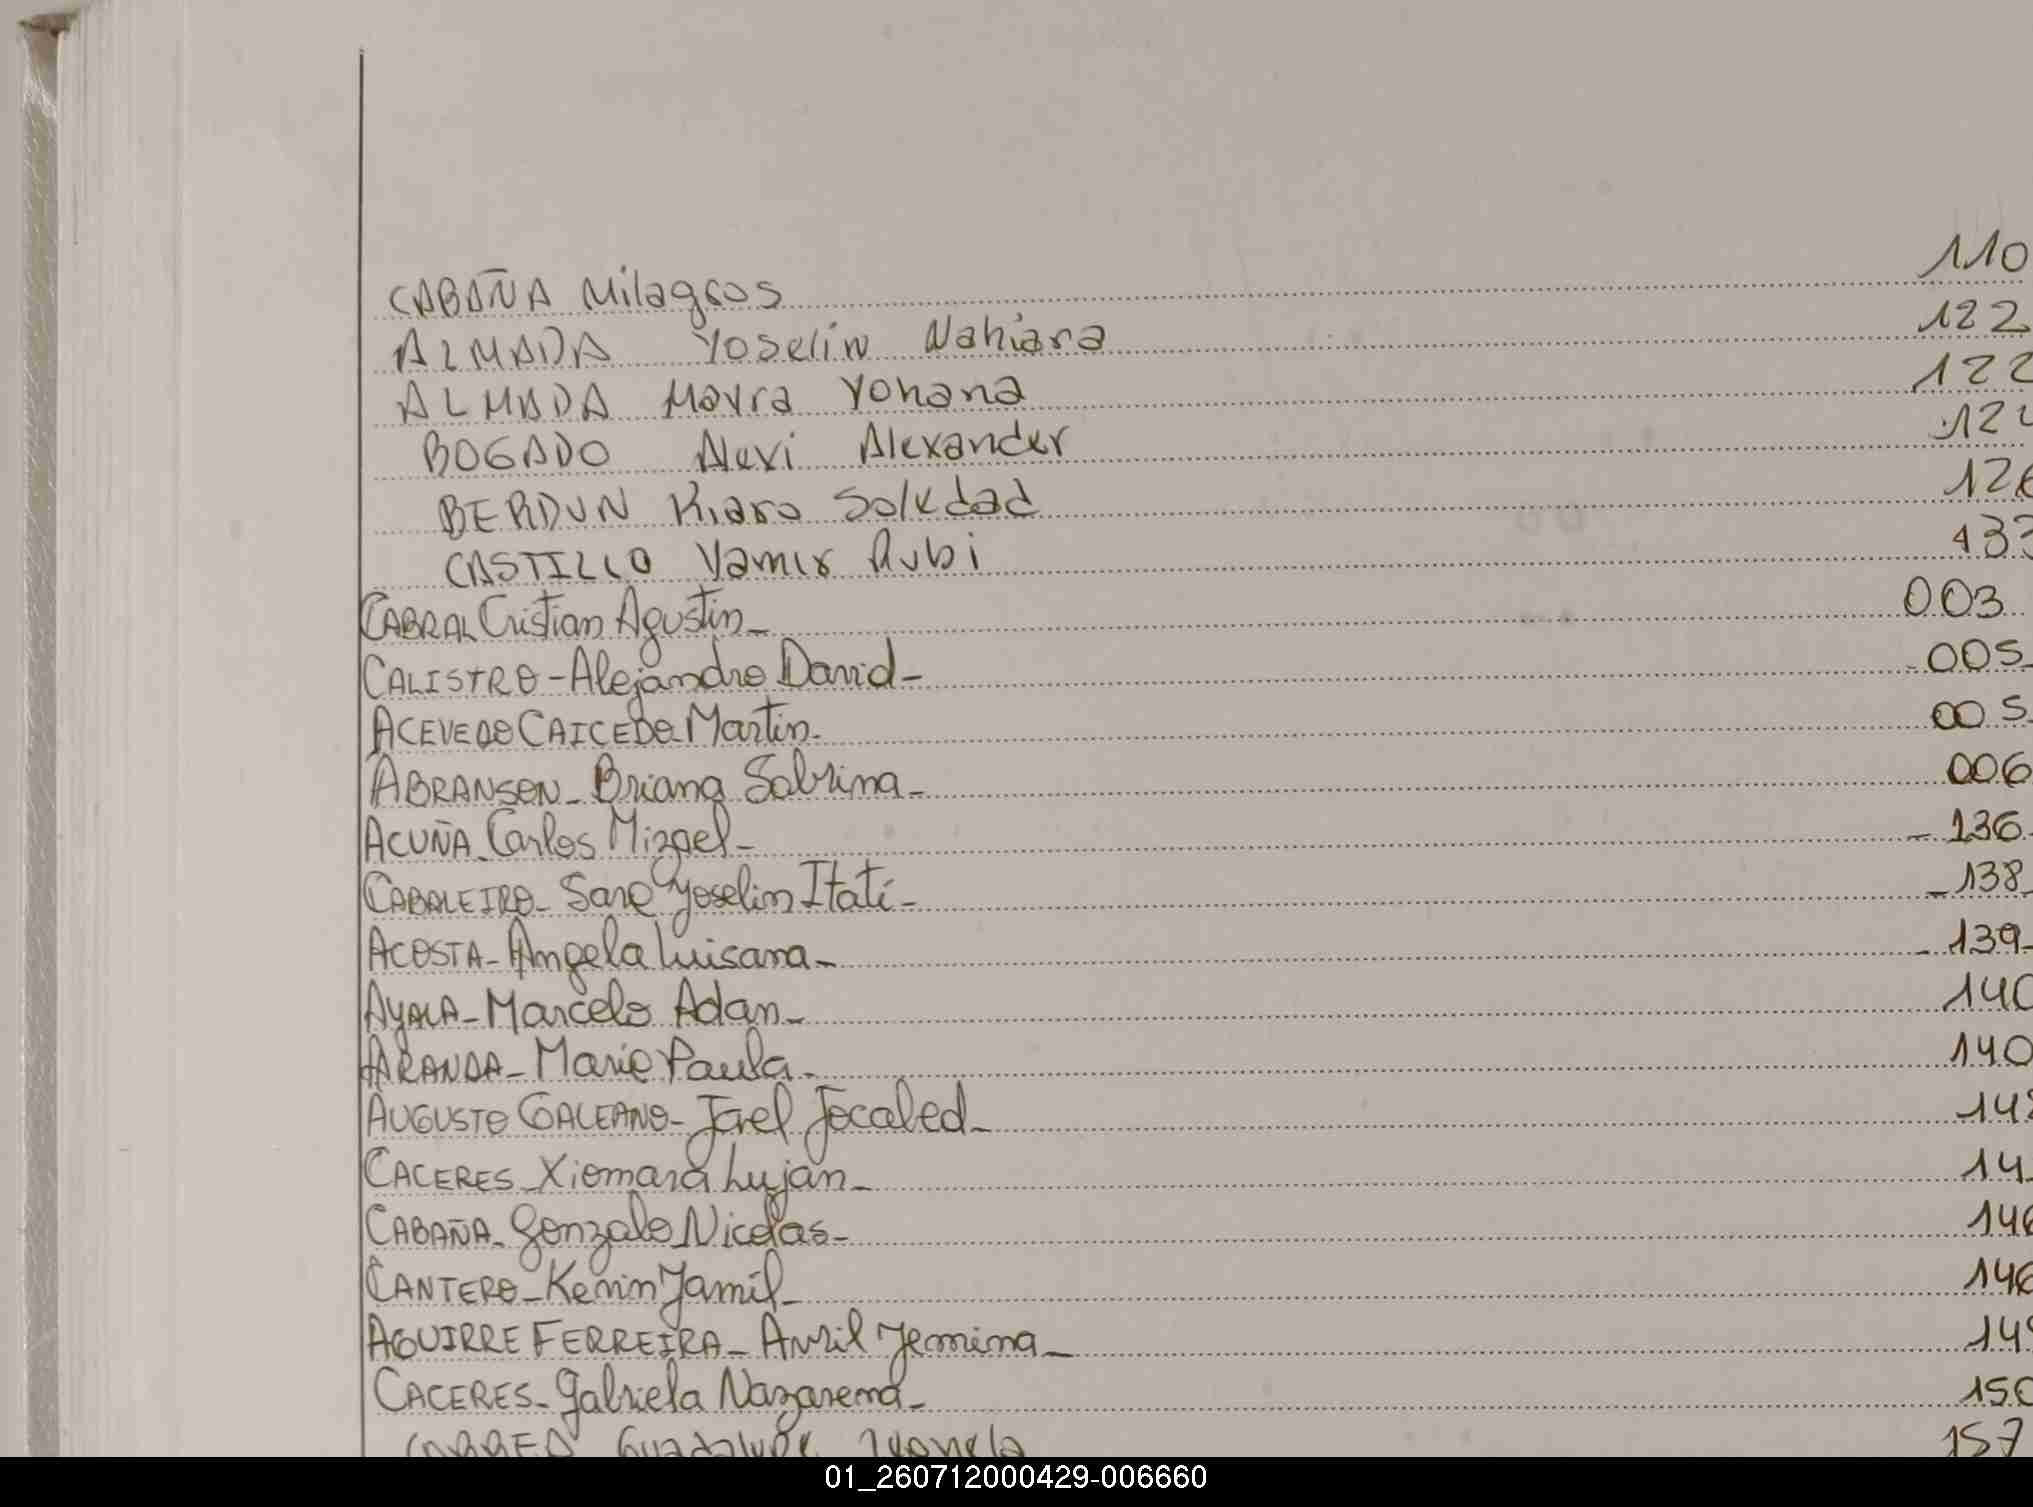 CABAÑA Milagros 110
ALMADA Yoselin Nahiara 122
ALMADA Mayra Yohana 122
BOGADO Alexander 12
BERDUN Kiara Soledad 126
CASTILLO Yamir Rubi 133
CABRAL Cristian Agustin_ 003
CALISTRO-Alejandro David- 005
ACEVEDO CAICEDO Martin. 005
ABRANSON_ Briana Sabrina_ 006
ACUÑA_Carlos Mizael_ 136
CABALEIRO_ Sara Yoselin Itatí_ 138
ACOSTA_Angela Luisana_ 139
AYALA_Marcelo Adan_ 140
ARANDA_ Maria Paula_ 140
AUGUSTO GALEANO_ 14
CACERES_Xiomara Lujan_ 14
CABAÑA_Gonzalo Nicolas_ 146
CANTERO_Kevin Yamil_ 146
AGUIRRE FERREIRA_ Avril Jemima_ 14
CACERES_Gabriela Nazarena_ 150
CORREA Guadalupe 157
01_260712000429-006660